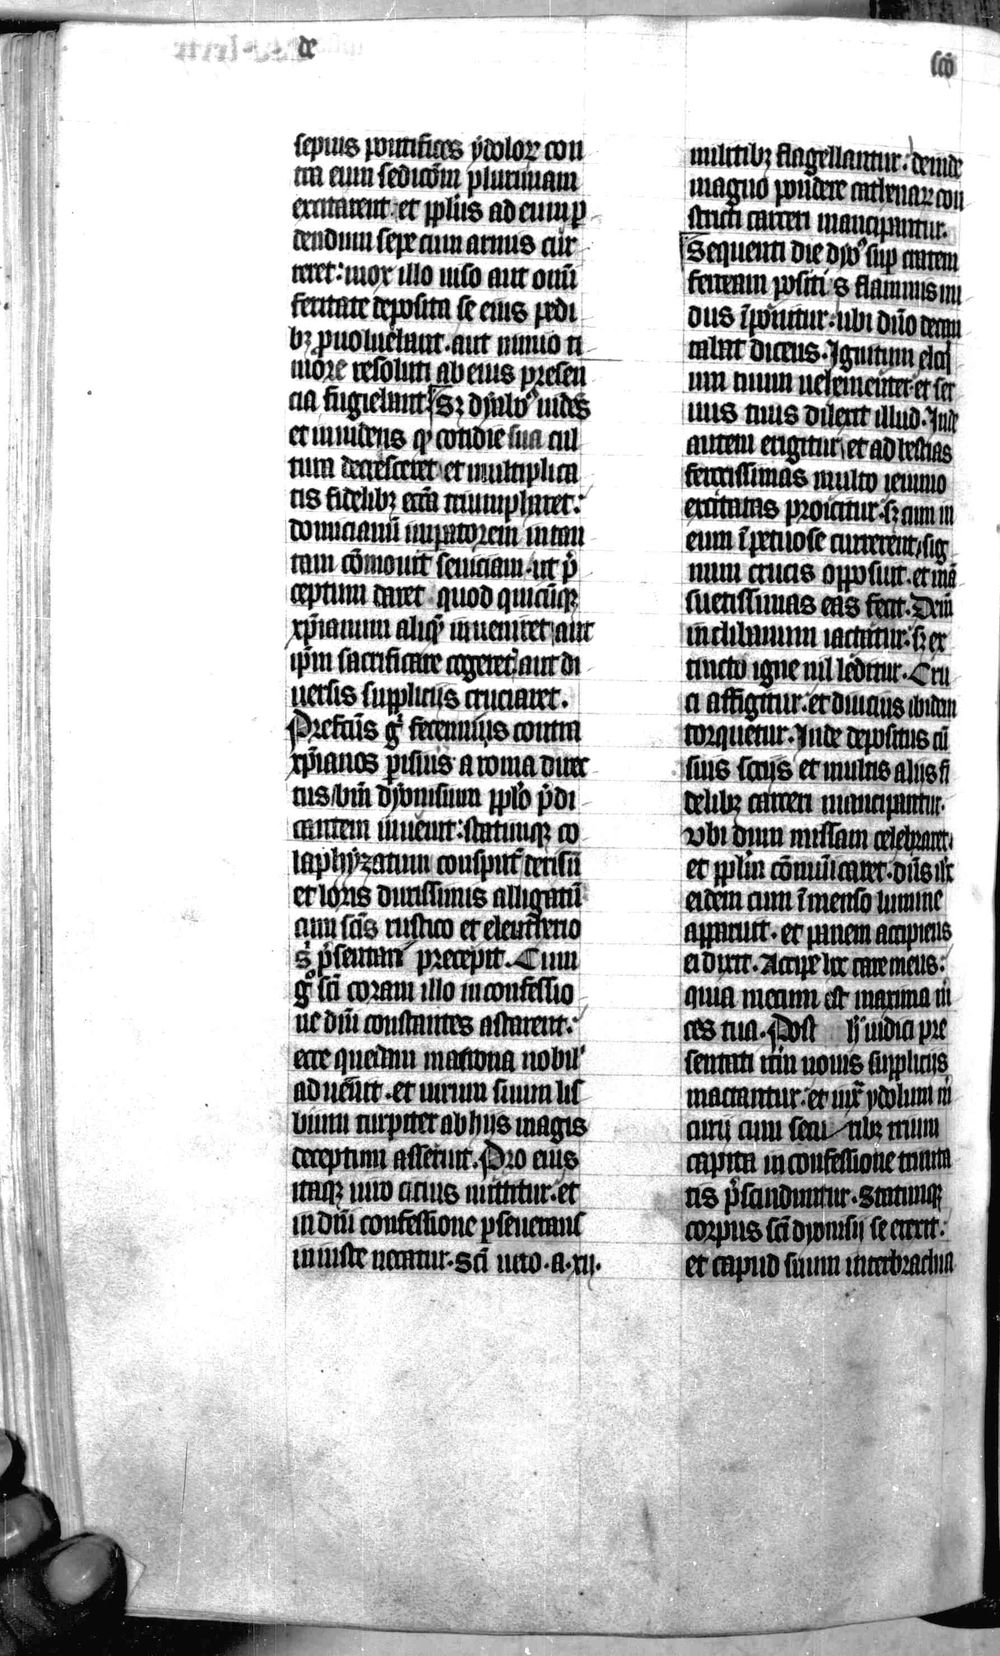 de
sco̅
sepius pontifices ydoloꝝ con
tra eum sedico̅m plurimam
excitarent· et pp̅lus ad eum p̲
dendum sepe cum armis cur
reret: mox illo uiso aut om̅i
feritate deposita se eius pedi
bꝫ ꝓuoluebant· aut nimio ti
more resoluti ab eius presen
cia fugiebant Sꝫ dyabo᷒ uides
et inuidens ꝙ cotidie sua cul
tum decresceret et multiplica
tis fidelibꝫ ecc̅a triumpharet:
domicianu̅ imꝑatorem in tan
tam co̅mouit seuiciam· ut p̅
ceptum daret quod quicu̅qꝫ
xp̅ianum aliqͥ inueniret aut
ip̅m sacrificare cogeret aut di
uersis supplicijs cruciaret·
Prefc̅us gͥ fecennijs contra
xp̅ianos parisius a roma direc
tus bm̅ dyonisium pp̅lo p̅di
cantem inuenit: statimqꝫ co
laphyzatum conspuit̅ derisu̅
et loris durissimis alligatu̅
cum sc̅is rustico et eleutherio
s̅ p̅sentari precepit· Cum
gͦ sc̅i coram illo in confessio
ne dn̅i constantes astarent:
ecce quedam matrona nobil'
aduenit· et uirum suum lis
bium turpiter ab hijs magis
deceptum asseruit· Pro eius
itaqꝫ uiro cicius mittitur· et
in dn̅i confessione ꝑseuerans
iniuste necatur· Sc̅i uero· a· xij·
militibꝫ flagellantur: deinde
magno pondere cathenaꝝ con
stricti carceri mancipantur·
Sequenti die dyo᷒ sup cratem
ferream positi s flammis nu
dus i̅ponitur· ubi dn̅o decan
tabat dicens· Ignitum eloq
um tuum uehementer· et ser
uus tuus dilexit illud· Inde
autem erigitur et ad bestias
ferocissimas multo ieiunio
excitatas proicitur· sꝫ cum in
eum i̅petuose currerent, sig
num crucis opposuit· et ma̅
suetissimas eas fecit· Dein̅
in clibanum iactatur: sꝫ ex
tincto igne nil leditur· Cru
ci affigitur· et diucius ibidem
torquetur· Inde depositus cu̅
suis socijs et multis alijs fi
delibꝫ carceri mancipantur·
Ubi dum missam celebraret·
et pplm̅ co̅municaret· dn̅s ih̅c
eidem cum i̅menso lumine
apparuit· et panem accipiens
ei dixit· Accipe hec care meus:
quia mecum est maxima m̅
ces tua· Post h̅ iudici pre
sentati iteru̅ nouis supplicijs
mactantur: et iux̅ ydolum m̅
curij cum securibꝫ trium
capita in confessione trinita
tis p̅scinduntur· Statimqꝫ
corpus sc̅i dyonisij se erexit:
et capud suum inter brachia